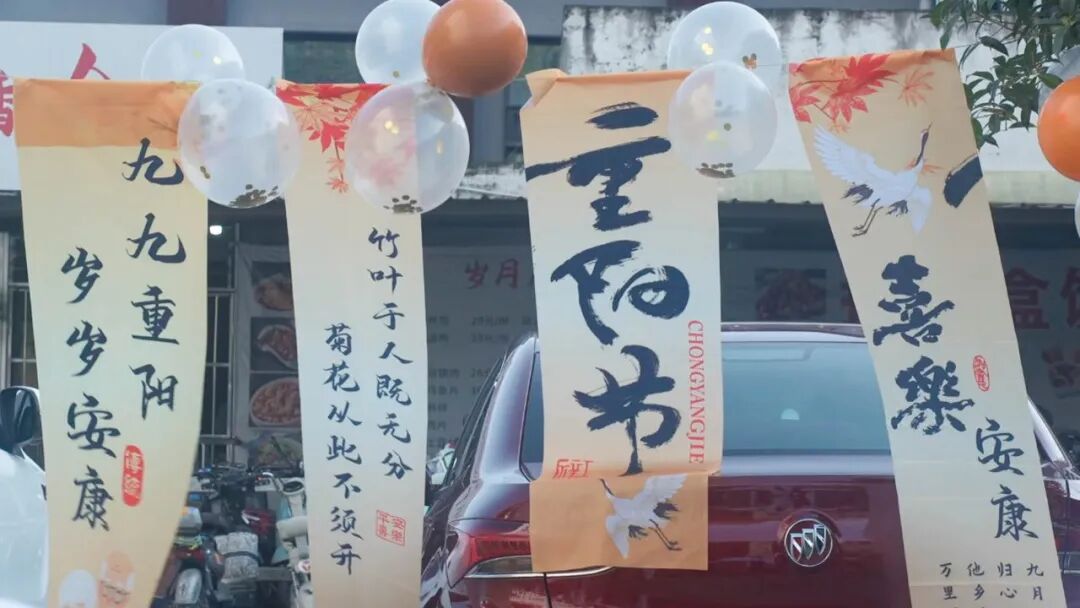 九九重阳
岁岁安康
竹叶于人既无分
菊花从此不须开
重阳节
CHONGYANGJIE
喜樂
安康
九月
归心
他乡
万里
岁月